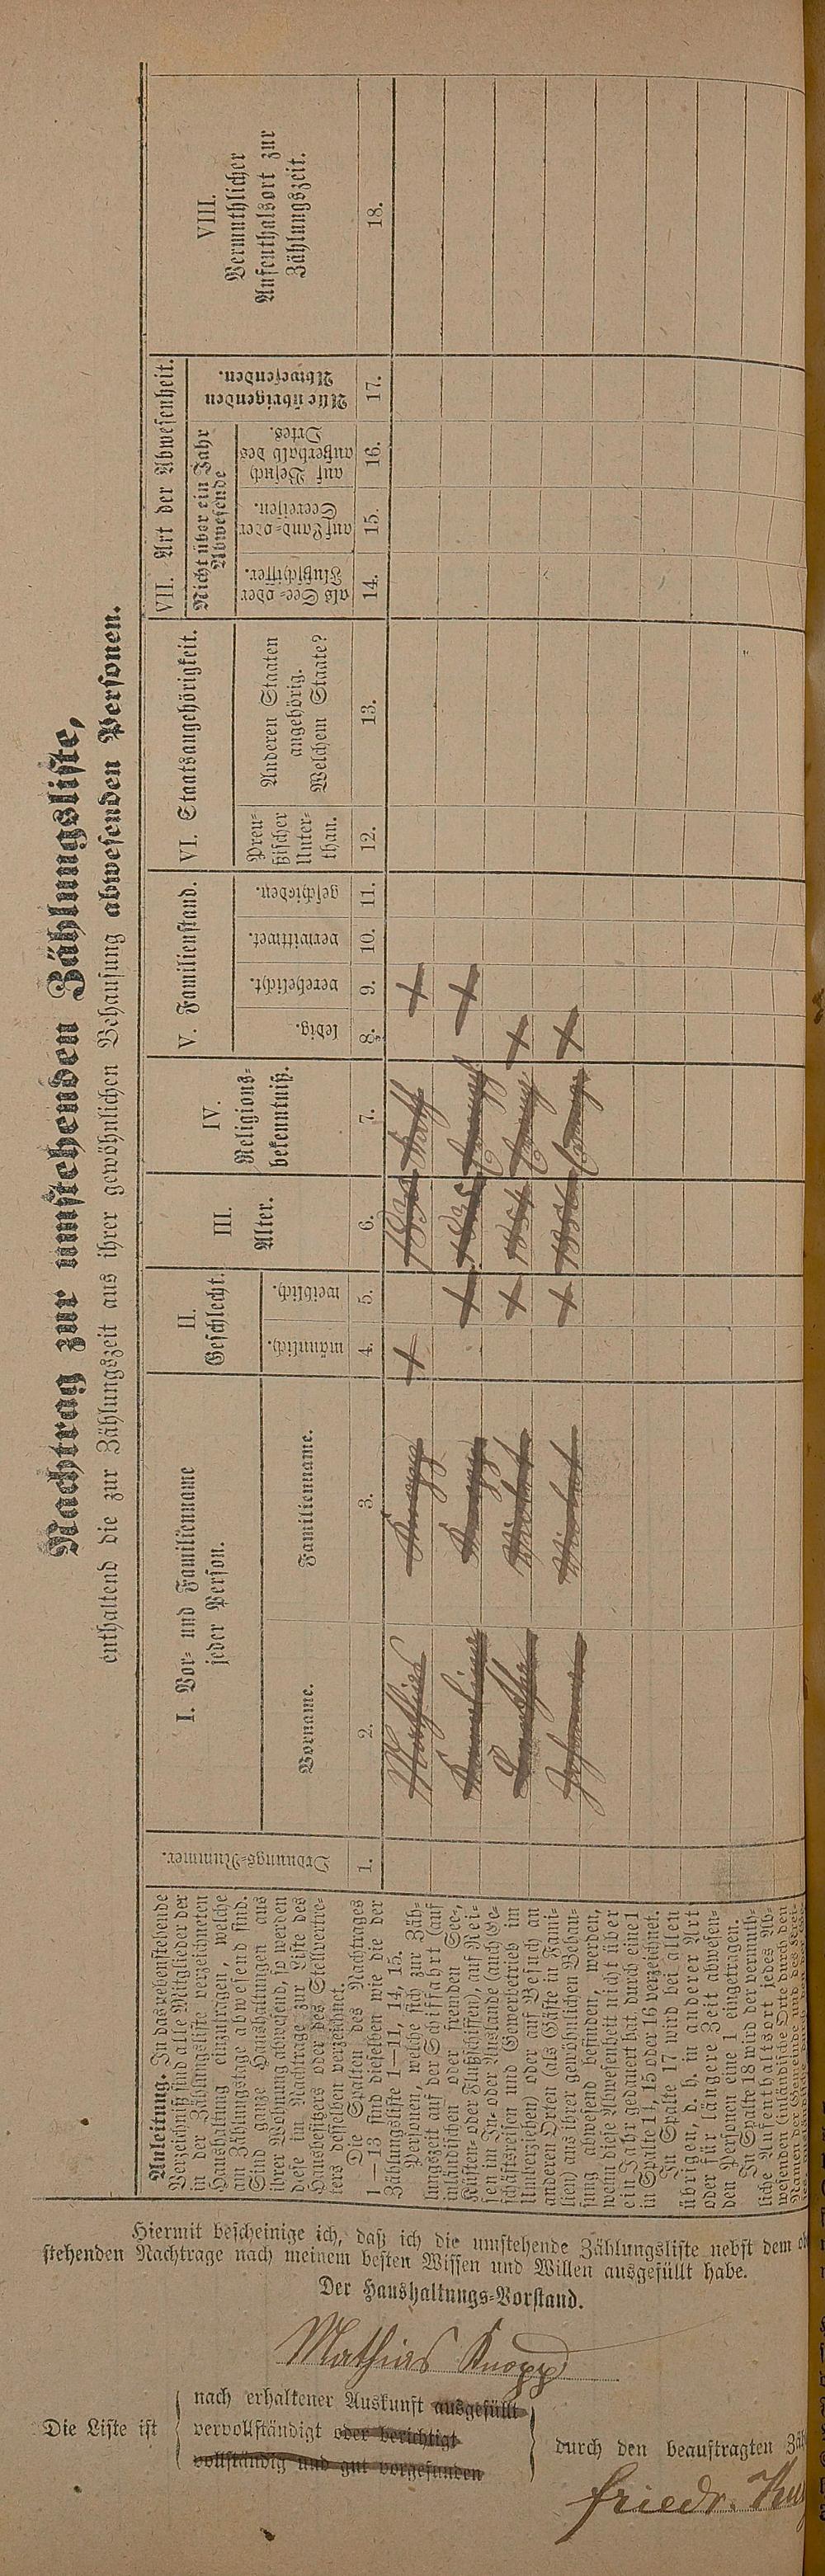 Nachtrag zur umstehenden Zählungsliste,
enthaltend die zur Zählungszeit aus ihrer gewöhnlichen Behausung abwesenden Personen.
Anleitung. In das nebenstehende
Verzeichniß sind alle Mitglieder der
in der Zählungsliste verzeichneten
Haushaltung einzutragen, welche
am Zählungstage abwesend sind.
Sind ganze Haushaltungen aus
ihrer Wohnung abwesend, so werden
diese im Nachtrage zur Liste des
Hausbesitzers oder des Stellvertre-
ters desselben verzeichnet.
Die Spalten des Nachtrages
1—13 sind dieselben wie die der
Zählungsliste 1—11, 14, 15.
Personen, welche sich zur Zäh-
lungszeit auf der Schifffahrt (auf
inländischen oder fremden See-,
Küsten- oder Flußschiffen), auf Rei-
sen im In- oder Auslande (auch Ge-
schäftsreisen und Gewerbetrieb im
Umherziehen) oder auf Besuch an
anderen Orten (als Gäste in Fami-
lien) aus ihrer gewöhnlichen Behau-
sung abwesend befinden, werden,
wenn diese Abwesenheit nicht über
ein Jahr gedauert hat durch eine 1
in Spalte 14, 15 oder 16 verzeichnet.
In Spalte 17 wird bei allen
übrigen, d. h. in anderer Art
oder für längere Zeit abwesen-
den Personen eine 1 eingetragen.
In Spalte 18 wird der vermuth-
liche Aufenthaltsort jedes Ab-
wesenden (inländische Orte durch den
Namen der Gemeinde und des Krei-
Ordnungs-Nummer.
1.
I. Vor- und Familienname
jeder Person.
Vorname.
2.
Familienname.
3.
II.
Geschlecht.
männlich.
4.
weiblich.
5.
III.
Alter.
6.
IV.
Religions-
bekenntniß.
7.
V. Familienstand.
ledig.
8.
verehelicht.
9.
verwittwet.
10.
geschieden.
11.
VI. Staatsangehörigkeit.
Preu-
ßischer
Unter-
than.
12.
Anderen Staaten
angehörig.
Welchem Staate?
13.
VII. Art der Abwesenheit.
Nicht über ein Jahr
Abwesende
als See- oder
Flußschiffer.
14.
auf Land- oder
Seereisen.
15.
auf Besuch
außerhalb des
Ortes.
16.
Alle übrigenden
Abwesenden.
17.
VIII.
Vermuthlicher
Aufenthalsort zur
Zählungszeit.
18.
Mathias Knopp + Kath +
Knopp + +
+ +
Johanna + +
Hiermit bescheinige ich, daß ich die umstehende Zählungsliste nebst dem
stehenden Nachtrage nach meinem besten Wissen und Willen ausgefüllt habe.
Der Haushaltungs-Vorstand.
Mathias Knopp
Die Liste ist
nach erhaltener Auskunft ausgefüllt
vervollständigt oder berichtigt
vollständig und gut vorgefunden
durch den beauftragten
Friedr.